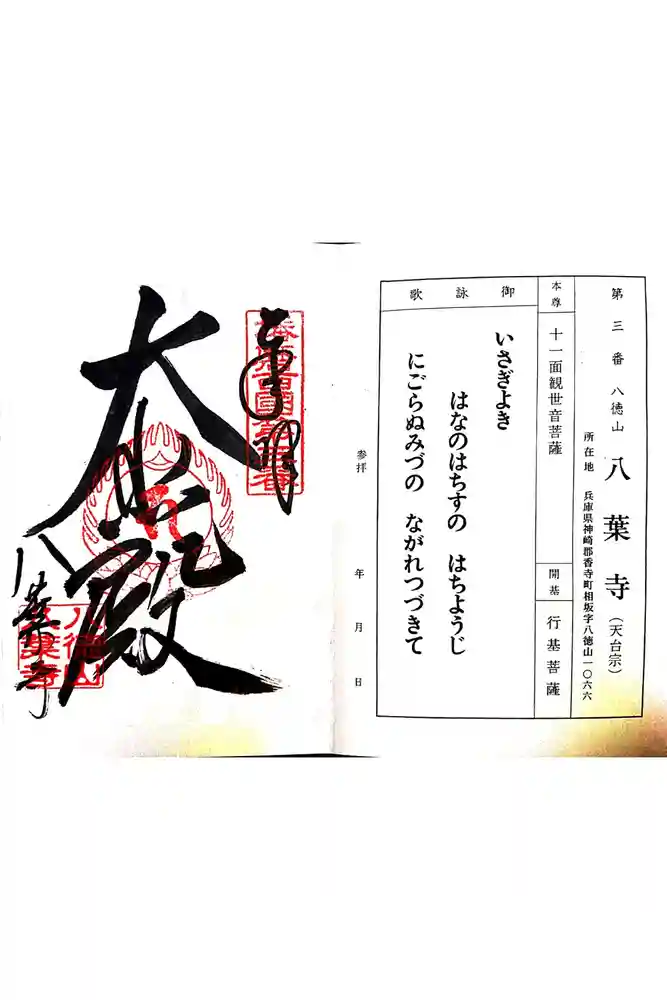 第三番 八徳山 八葉寺(天台宗)
所在地 兵庫県神崎郡香寺町相坂字八徳山一〇六六
本尊 十一面観世音菩薩
開基 行基菩薩
御詠歌
いさぎよき
はなのはちすの はちようじ
にごらぬみづの ながれつづきて
参拝 年 月 日
奉拝
大悲殿
八葉寺
八徳山
八葉寺